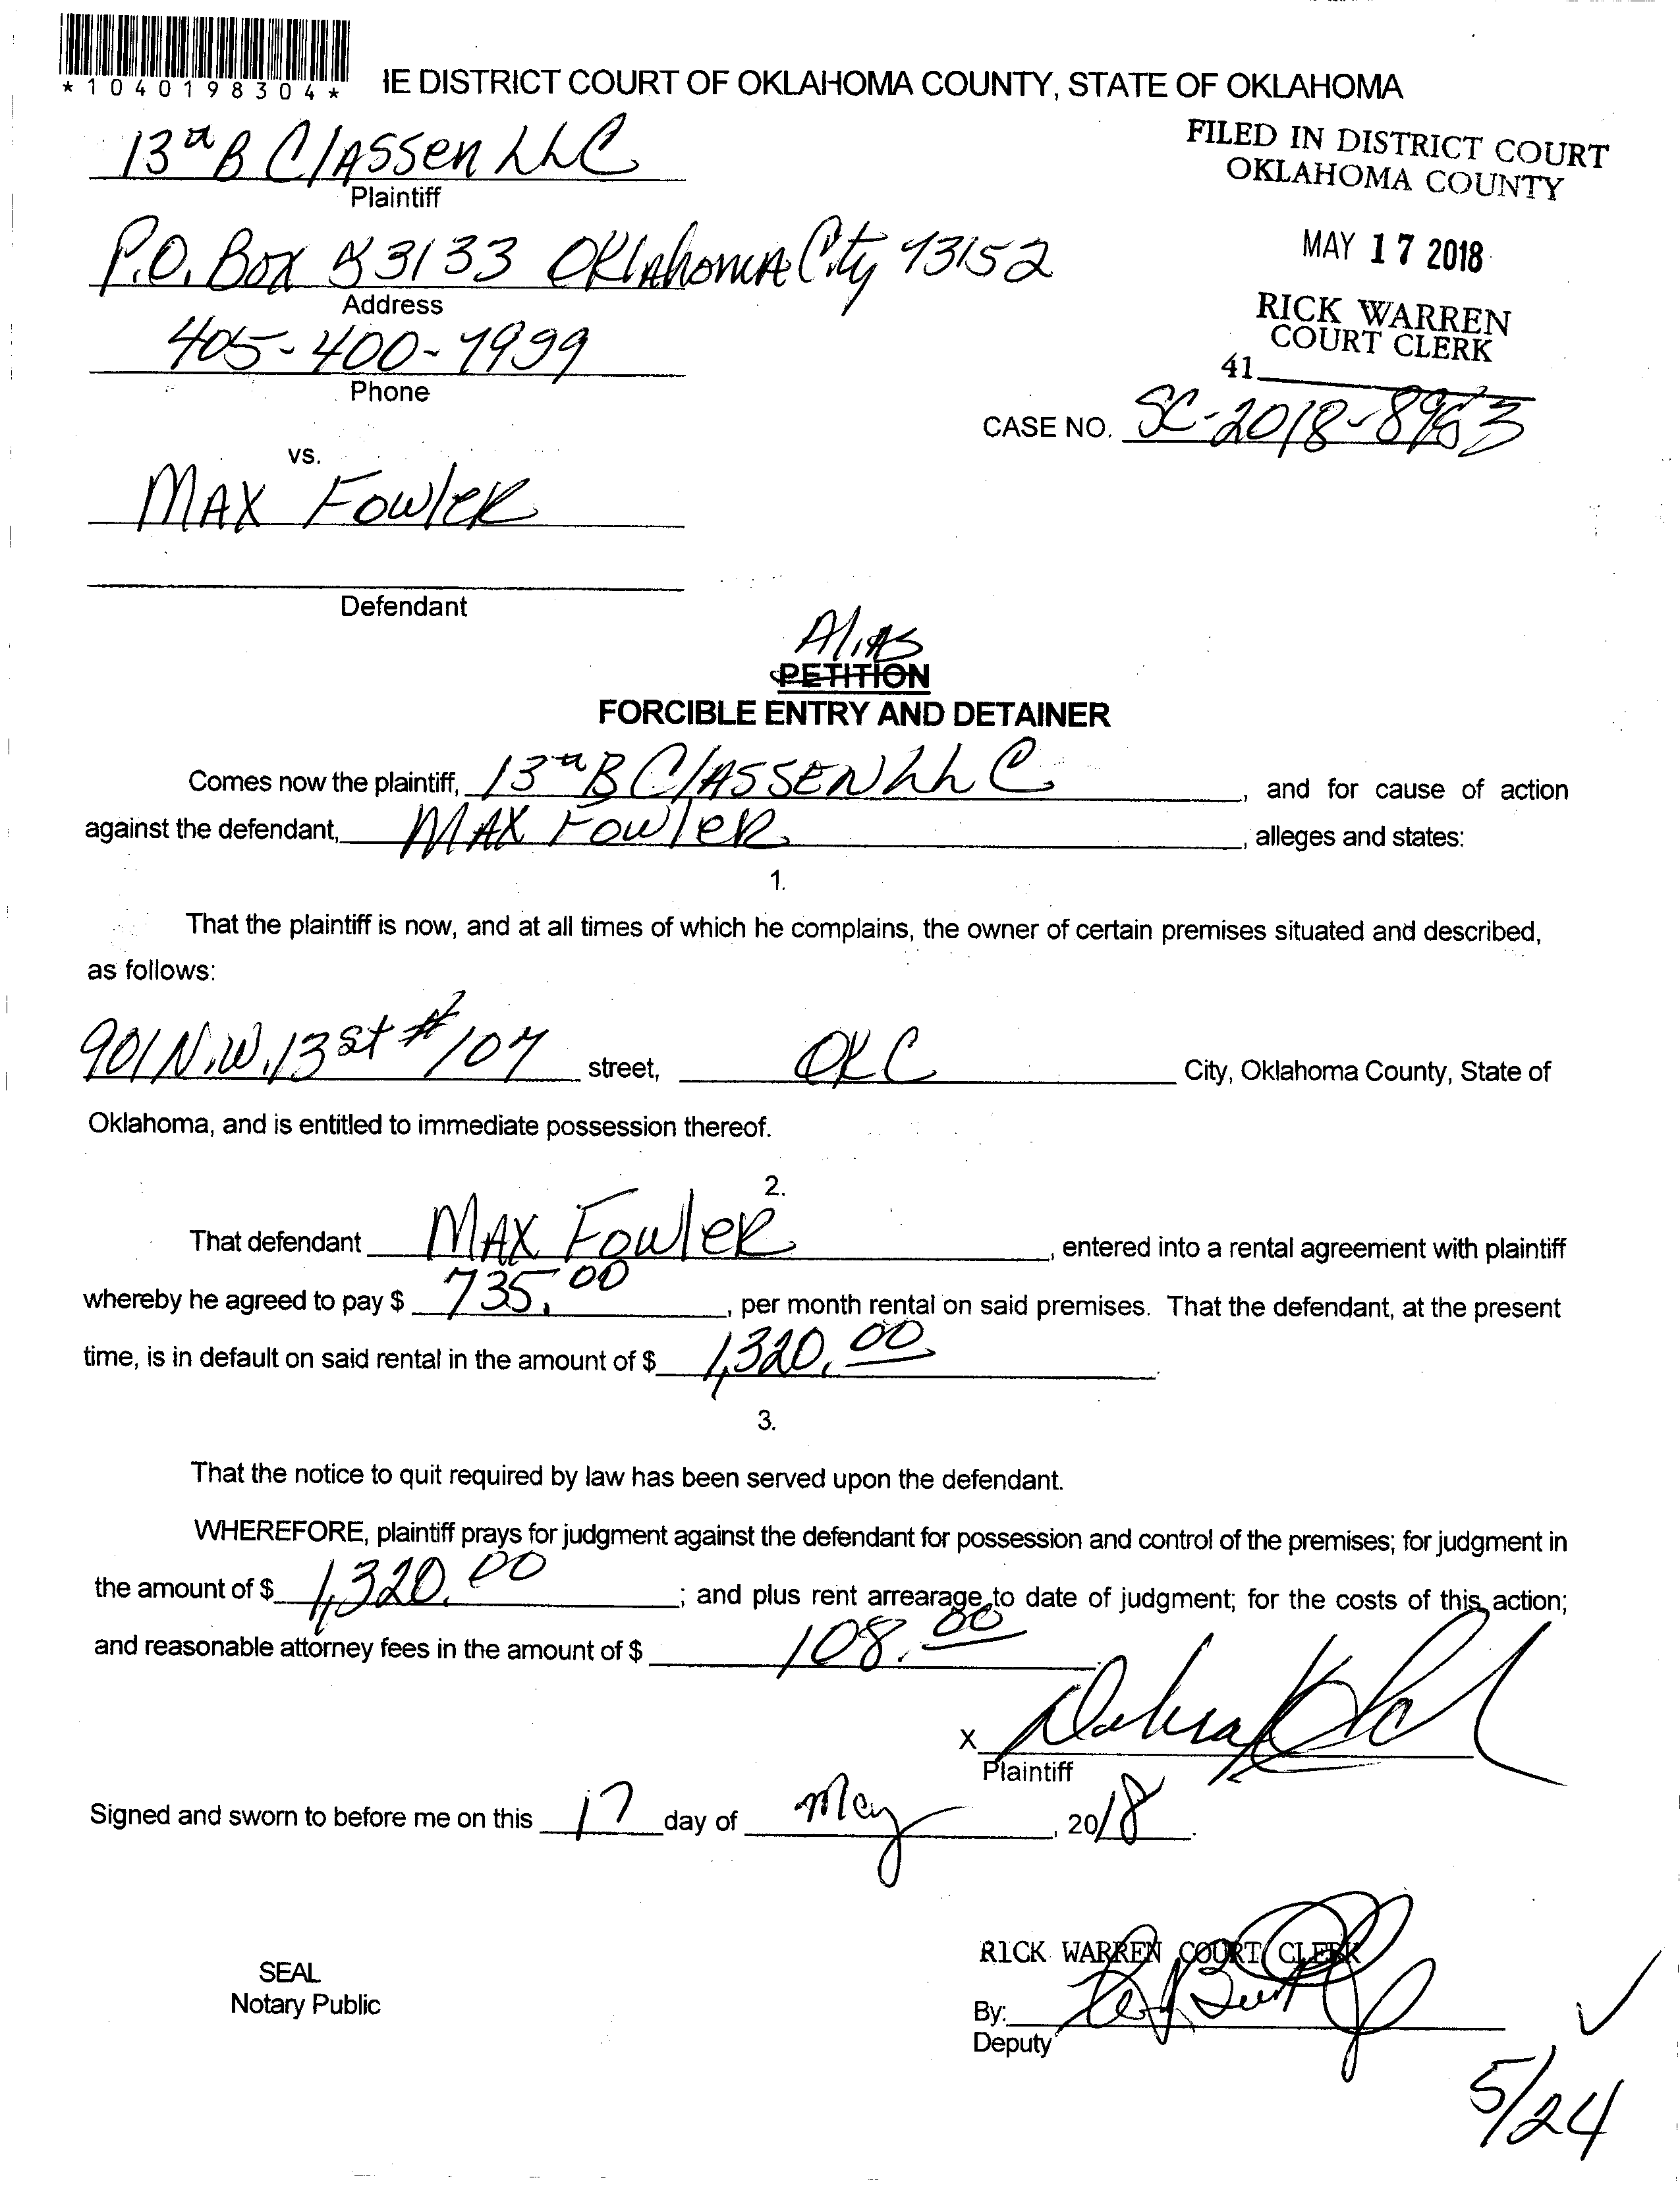 *1040198304*
IE DISTRICT COURT OF OKLAHOMA COUNTY, STATE OF OKLAHOMA
13th B Classen LLC
Plaintiff
FILED IN DISTRICT COURT
OKLAHOMA COUNTY
MAY 17 2018
RICK WARREN
COURT CLERK
41
P.O. Box 83133 Oklahoma City 73152
Address
405-400-7999
Phone
CASE NO. SC-2018-8963
vs.
MAX Fowler
Defendant
Alias
PETITION
FORCIBLE ENTRY AND DETAINER
Comes now the plaintiff, 13th B CLASSEN LLC, and for cause of action
against the defendant, MAX Fowler, alleges and states:
1.
That the plaintiff is now, and at all times of which he complains, the owner of certain premises situated and described,
as follows:
901 N.W. 13 st #107 street, OKC City, Oklahoma County, State of
Oklahoma, and is entitled to immediate possession thereof.
2.
That defendant MAX Fowler, entered into a rental agreement with plaintiff
whereby he agreed to pay $ 735.00, per month rental on said premises. That the defendant, at the present
time, is in default on said rental in the amount of $ 1,320.00.
3.
That the notice to quit required by law has been served upon the defendant.
WHEREFORE, plaintiff prays for judgment against the defendant for possession and control of the premises; for judgment in
the amount of $ 1,320.00; and plus rent arrearage to date of judgment; for the costs of this action;
and reasonable attorney fees in the amount of $ 108.00
X
Plaintiff
Signed and sworn to before me on this 17 day of May, 2018.
SEAL
Notary Public
RICK WARREN COURT CLERK
By:
Deputy
5/24